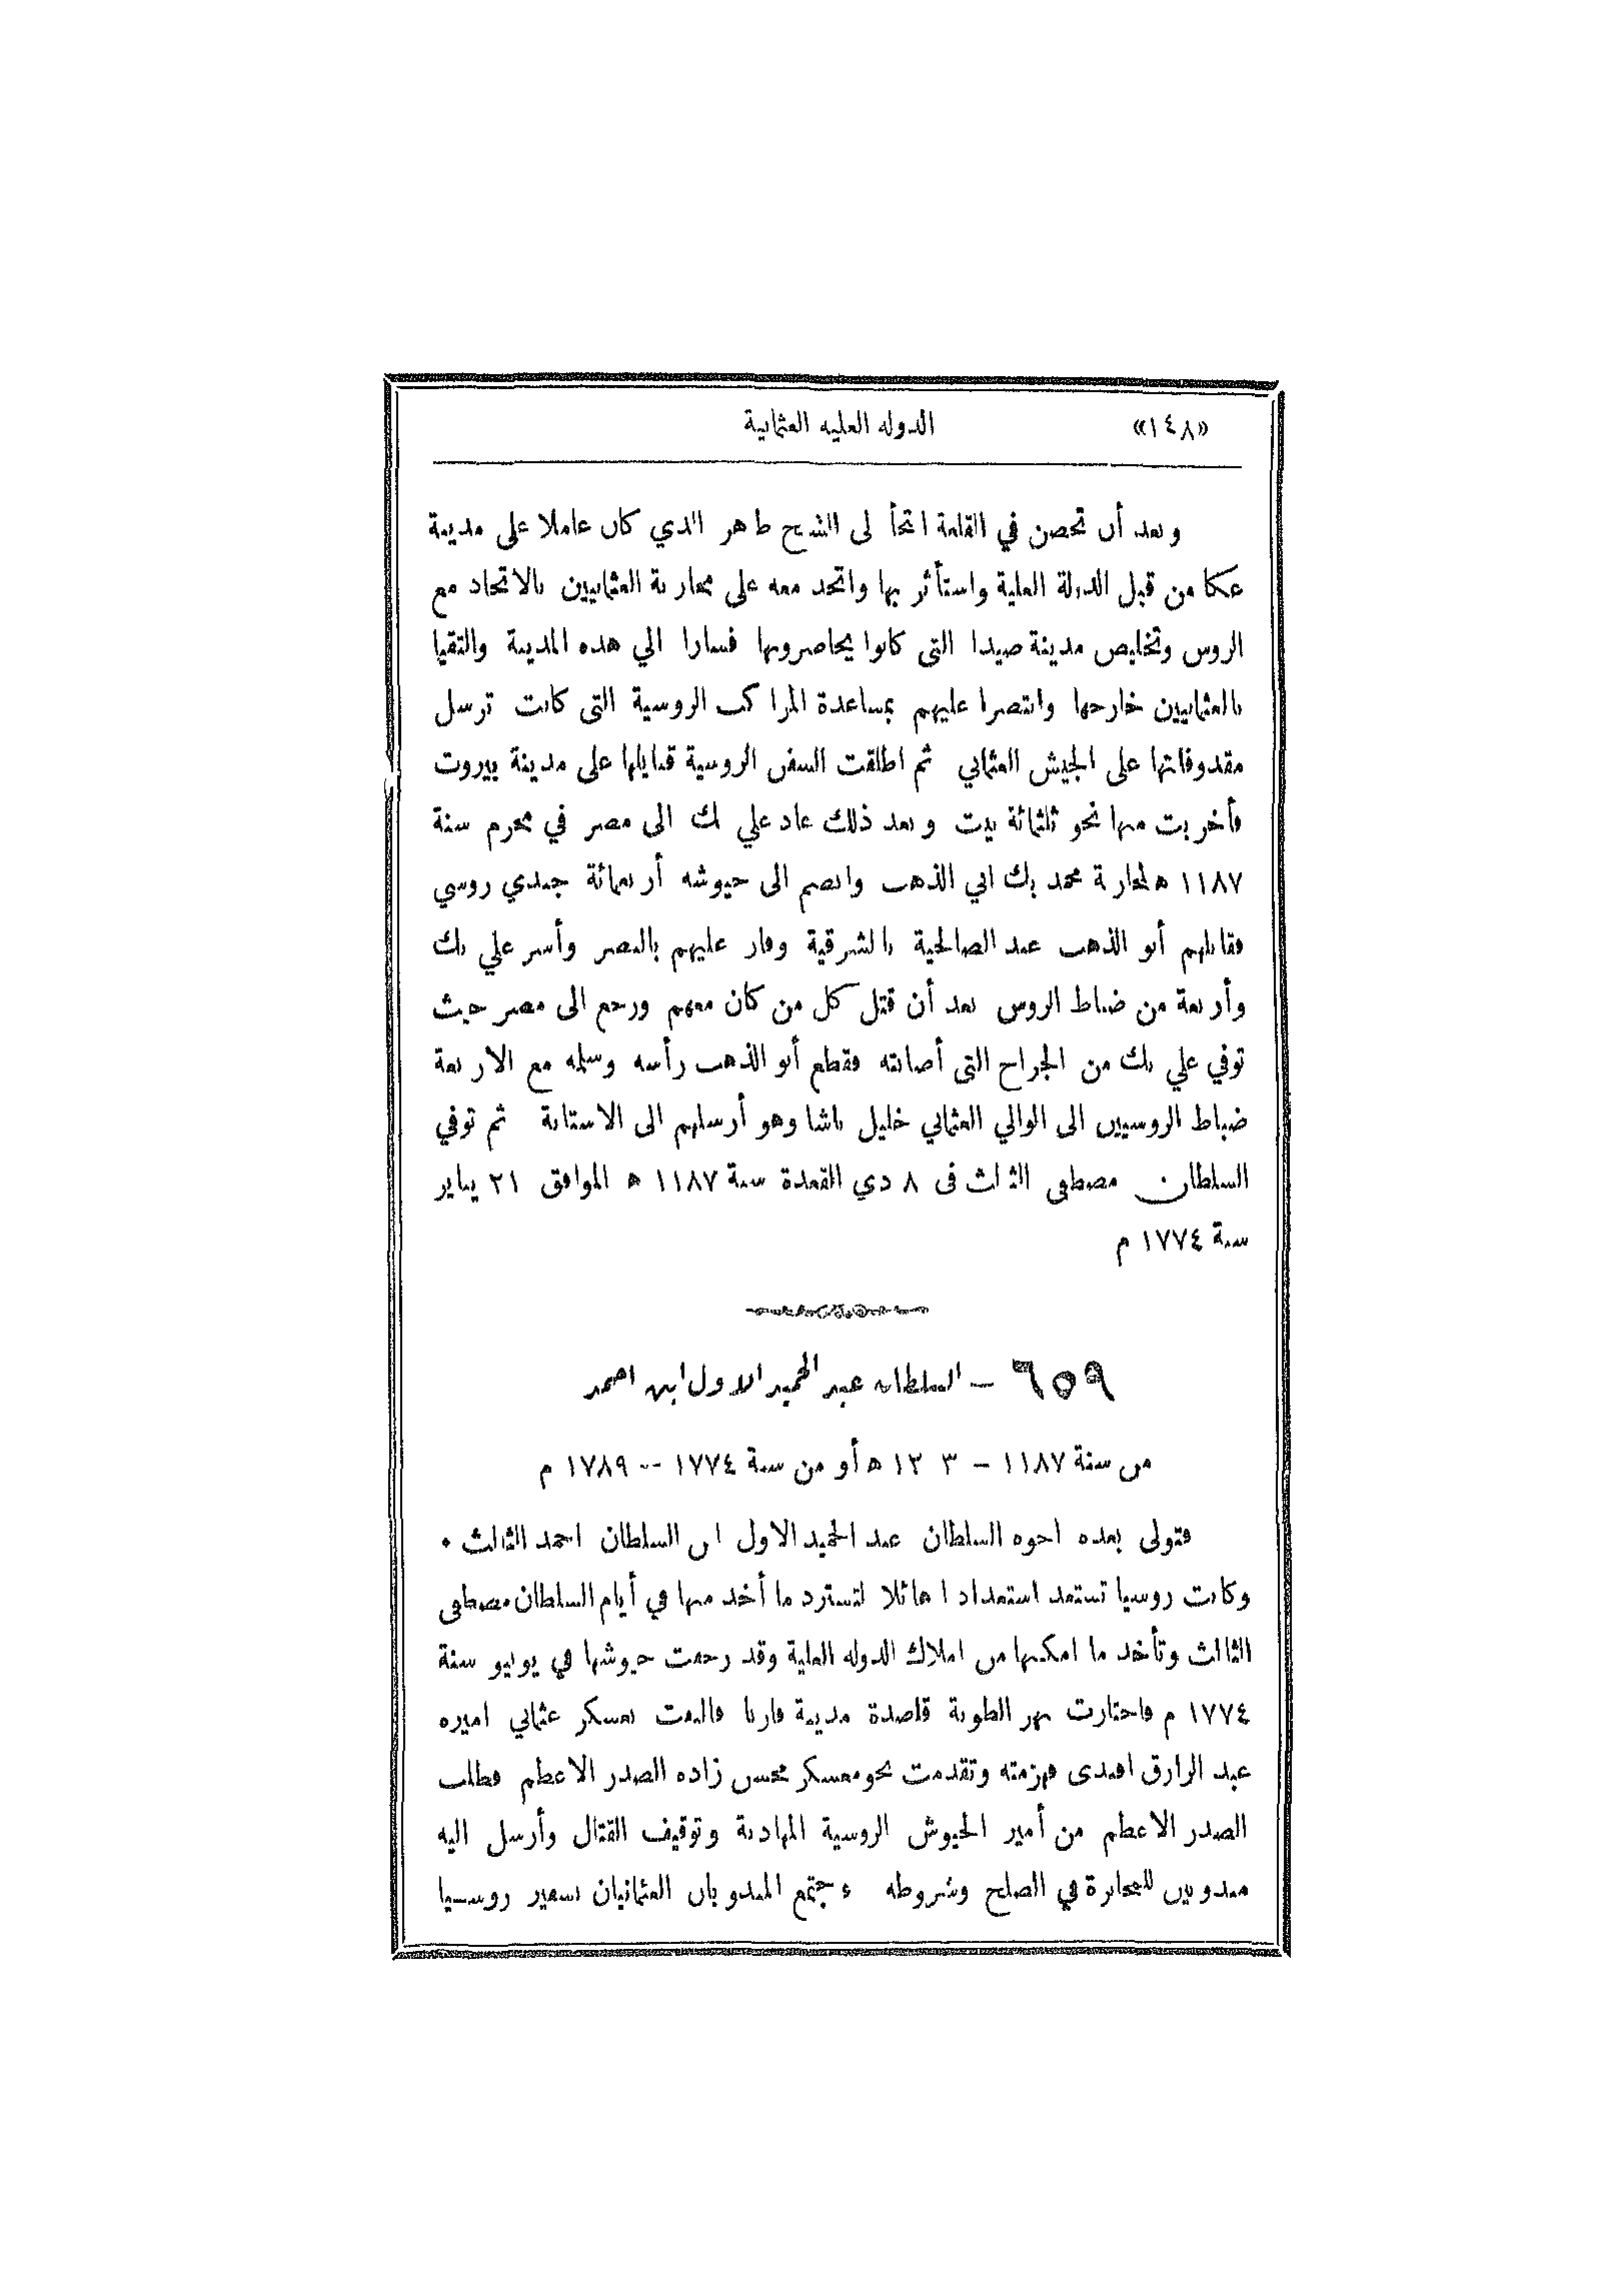 «١٤٨» الدوله العليه العثمانية
وبعد أن تحصن في القلعة التجأ الى الشيخ طاهر الذي كان عاملا على مدينة
عكا من قبل الدولة العلية واستأثر بها واتحد معه على محاربة العثمانيين بالاتحاد مع
الروس وتخليص مدينة صيدا التى كانوا يحاصرونها فسارا الي هذه المدينة والتقيا
بالعثمانيين خارجها وانتصرا عليهم بمساعدة المراكب الروسية التى كانت ترسل
مقذوفاتها على الجيش العثماني ثم اطلقت السفن الروسية قنابلها على مدينة بيروت
فأخربت منها نحو ثلثمائة بيت وبعد ذلك عاد علي بك الى مصر في محرم سنة
١١٨٧ ه لمحاربة محمد بك ابي الذهب وانضم الى جيوشه أربعمائة جندي روسي
فقابلهم أبو الذهب عند الصالحية بالشرقية وفاز عليهم بالنصر وأسر علي بك
وأربعة من ضباط الروس بعد أن قتل كل من كان معهم ورجع الى مصر حيث
توفي علي بك من الجراح التى أصابته فقطع أبو الذهب رأسه وسلمه مع الاربعة
ضباط الروسيين الى الوالي العثماني خليل باشا وهو أرسلهم الى الاستانة ثم توفي
السلطان مصطفى الثالث فى ٨ ذي القعدة سنة ١١٨٧ ه الموافق ٢١ يناير
سنة ١٧٧٤ م
٦٥٩ – السلطان عبد الحميد الاول ابن احمد
من سنة ١١٨٧ – ١٢٠٣ ه أو من سنة ١٧٧٤ – ١٧٨٩ م
فتولى بعده اخوه السلطان عبد الحميد الاول ابن السلطان احمد الثالث ٠
وكانت روسيا تستعد استعدادا هائلا لتسترد ما أخذ منها في أيام السلطان مصطفى
الثالث وتأخذ ما امكنها من املاك الدوله العلية وقد زحفت جيوشها في يونيو سنة
١٧٧٤ م فاجتازت نهر الطونة قاصدة مدينة فارنا فالتقت بعسكر عثماني اميره
عبد الرازق افندى فهزمته وتقدمت نحو معسكر محسن زاده الصدر الاعظم فطلب
الصدر الاعظم من أمير الجيوش الروسية المهادنة وتوقيف القتال وأرسل اليه
مندوبين للمخابرة في الصلح وشروطه فاجتمع المندوبان العثمانيان بسفير روسيا